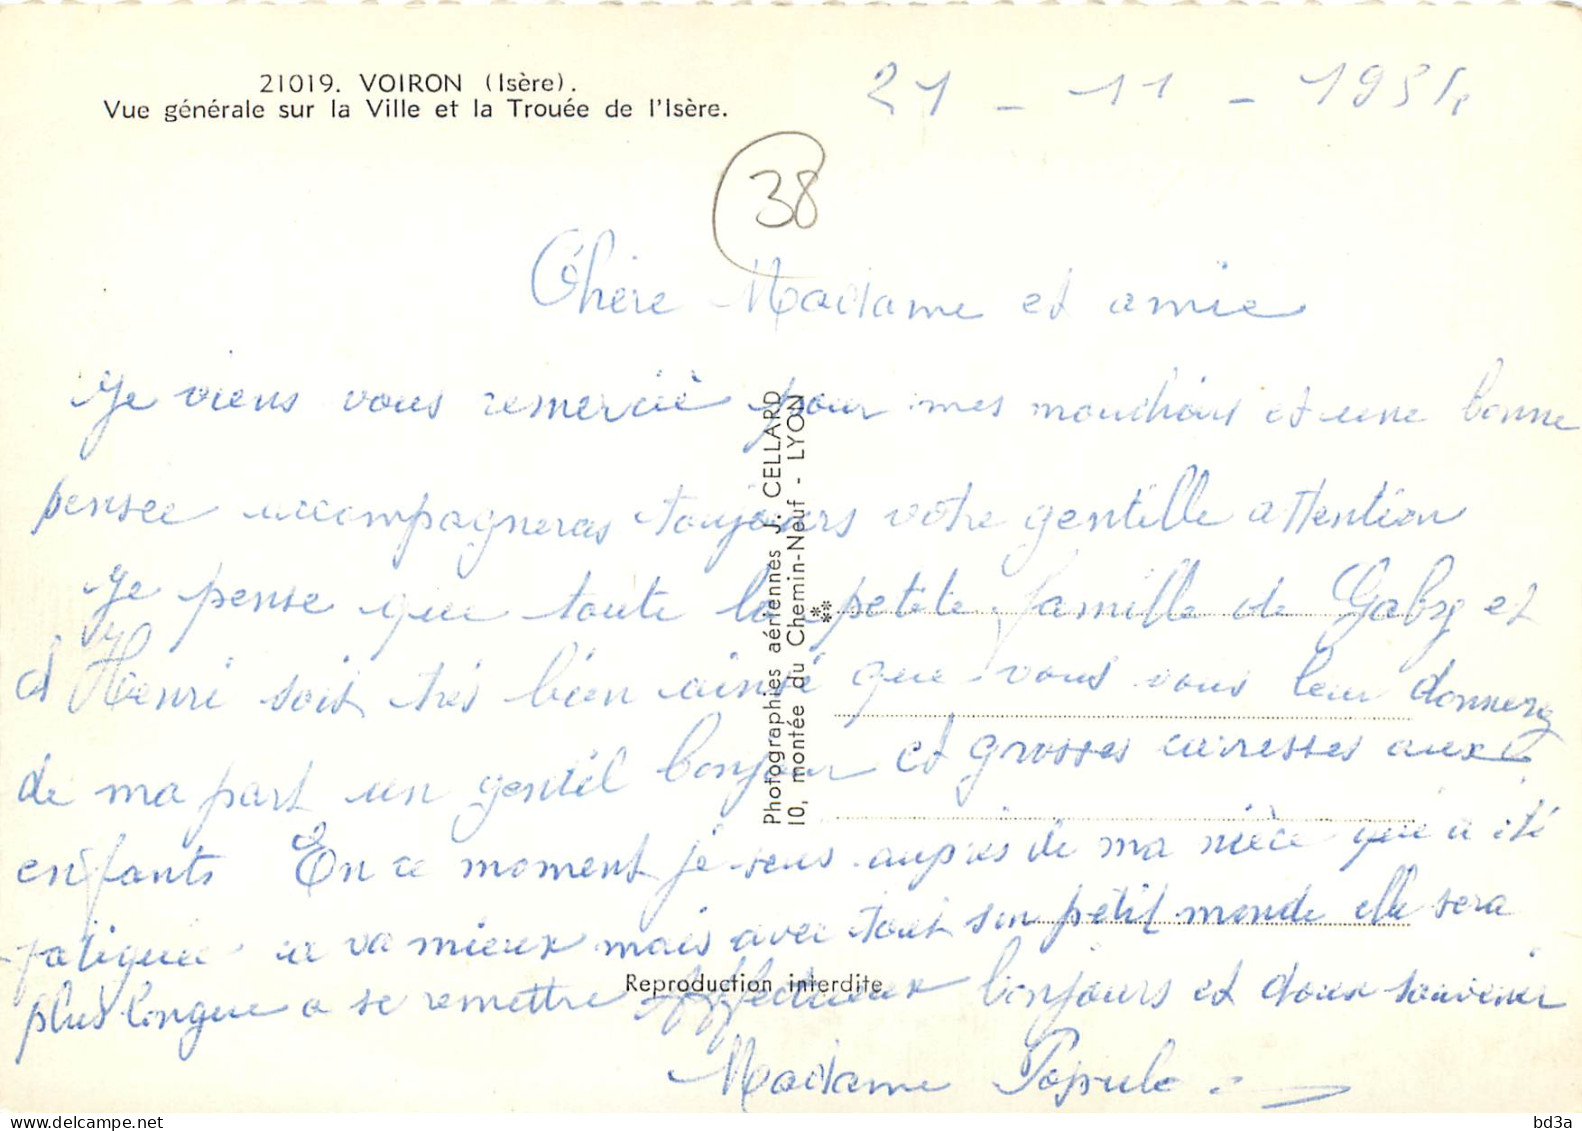 21019. VOIRON (Isère).
Vue générale sur la Ville et la Trouée de l'Isère.
21 - 11 - 195
38
Chère Madame et amie
Je viens vous remercié pour mes mouchoirs et une bonne
pensée accompagneras toujours votre gentille attention
Je pense que toute la petite famille de Gaby et
d Henri sois très bien ainsi que vous vous leur donnerez
de ma part un gentil bonjour et grosses caresses aux
enfants En ce moment je suis aupres de ma nièce qui a été
fatiguée mieux mais avec tout son petit monde elle sera
plus longue a se remettre Affectueux bonjours et doux souvenir
Madame
Photographies aériennes J. CELLARD
10, montée du Chemin-Neuf - LYON
Reproduction interdite
bd3a